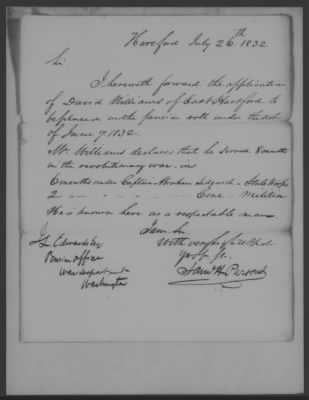 Hartford July 26th 1832
Sir
I herewith forward the application
of David Williams of East Hartford to
be placed on the pension roll under the act
of June 7. 1832.
Mr Williams declares that he served 8 months
in the revolutionary war. in
6 months under Captain Abraham Sedgwick - State Troops
2 " " " Cone - Militia
He is known here as a respectable man
I am Sir
With very great respect
yr obt st.
Saml H Parsons
J L Edwards Esq
Pension office
War department
Washington